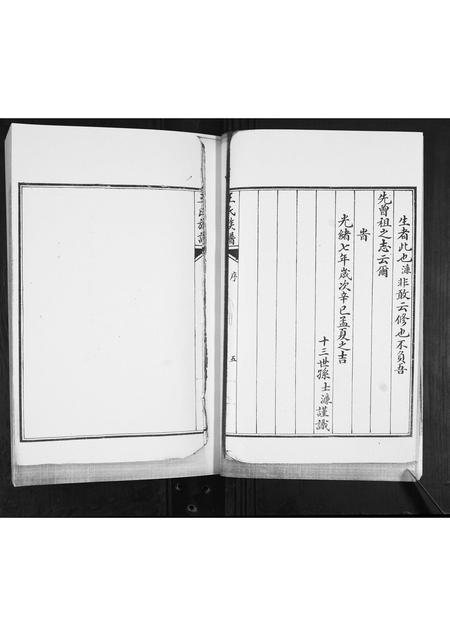 生者此也濂非敢云修也不負吾
先曾祖之志云爾
旹
光緒七年歲次辛巳孟夏之吉
十三世孫士濂謹識
王氏族譜
序
五
王氏族譜